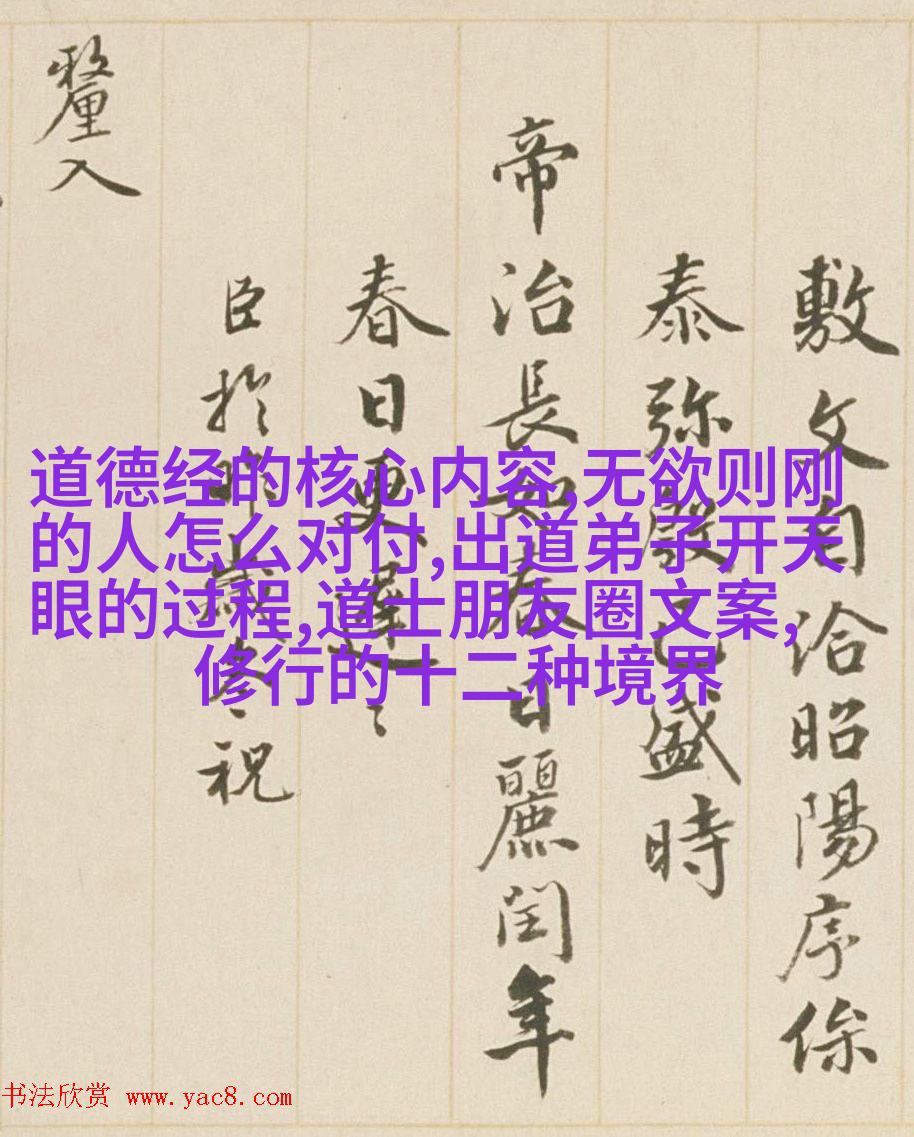 敷文自洽昭陽序
泰弥殷盛時
帝治長如春日麗閏年
春日更遲〻
臣於昨歲冬祝
釐入
道德经的核心内容,无欲则刚
的人怎么对付,出道弟子开天
眼的过程,道士朋友圈文案,
修行的十二种境界
书法欣赏 www.yac8.com